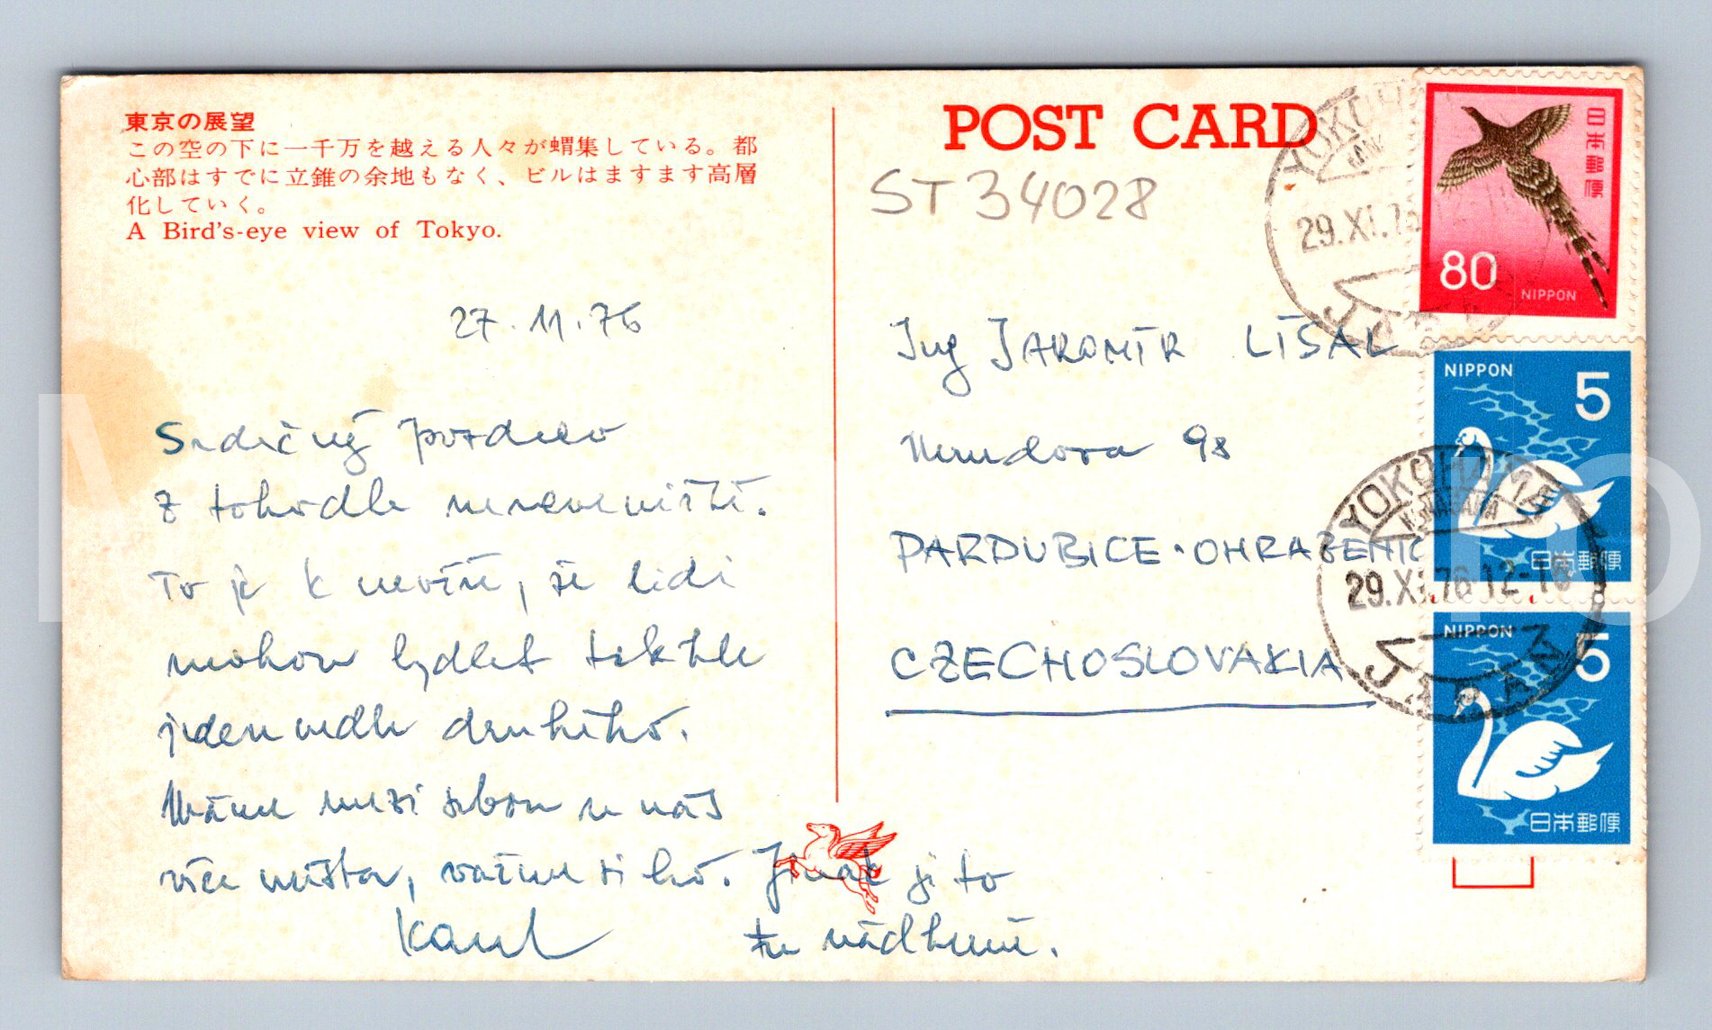 東京の展望
この空の下に一千万を越える人々が蝟集している。都
心部はすでに立錐の余地もなく、ビルはますます高層
化していく。
A Bird's-eye view of Tokyo.
27.11.76
Srdečný pozdrav
z tohodle mraveniště.
To je k nevíře, že lidi
mohou bydlet takhle
jeden vedle druhého.
Máme mezi sebou u nás
více místa, važme si ho. Jinak je to
tu nádherné.
Karel
POST CARD
ST34028
Ing JAROMÍR LÍŠAL
98
PARDUBICE · OHRAZENIC
CZECHOSLOVAKIA
日本郵便
80
NIPPON
NIPPON
5
日本郵便
NIPPON
5
日本郵便
YOKOHAMA
29.XI.76
JAPAN
YOKOHAMA
29.XI.76 12-18
JAPAN